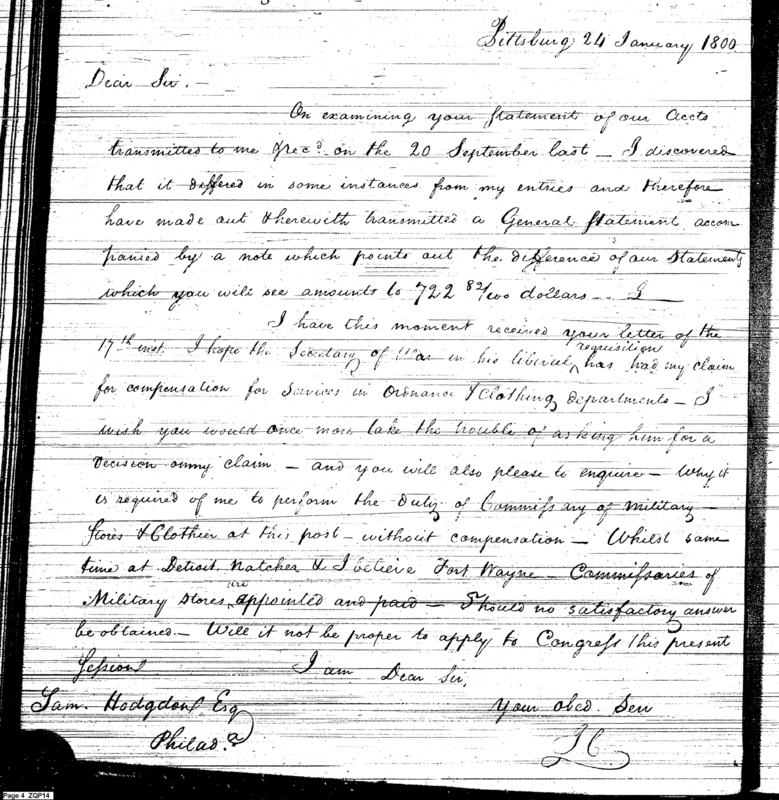 Pittsburg 24 January 1800
Dear Sir. —
On examining your Statement of our Accts
transmitted to me & rec.d on the 20 September last — I discovered
that it differed in some instances from my entries and therefore
have made out & herewith transmitted a General Statement accom
panied by a note which points out the difference of our Statements
which you will see amounts to 722 82/100 dollars —
I have this moment received your letter of the
17th inst. I hope the Secretary of War in his liberal requisition has had my claim
for compensation for Services in Ordnance & Clothing departments — I
wish you would once more take the trouble of asking him for a
decision on my claim — and you will also please to enquire — Why it
is required of me to perform the Duty of Commissary of Military —
Stores & Clothier at this post — without compensation — Whilst same
time at Detroit, Natchez & I believe Fort Wayne — Commissaries of
Military Stores are appointed and paid — Should no satisfactory answer
be obtained — Will it not be proper to apply to Congress this present
Session
I am Dear Sir,
Sam. Hodgdon Esq
Your obed. Serv
Philad.a
IC
Page 4 ZQP14